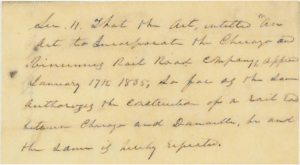 Sec. 11. That the Act, intitled "An
Act to Incorporate the Chicago and
Vincennes Rail Road Company, appro
January 17th 1835, so far as the same
Authorizes the construction of a rail road
between Chicago and Danville, be and
the same is hereby repealed.